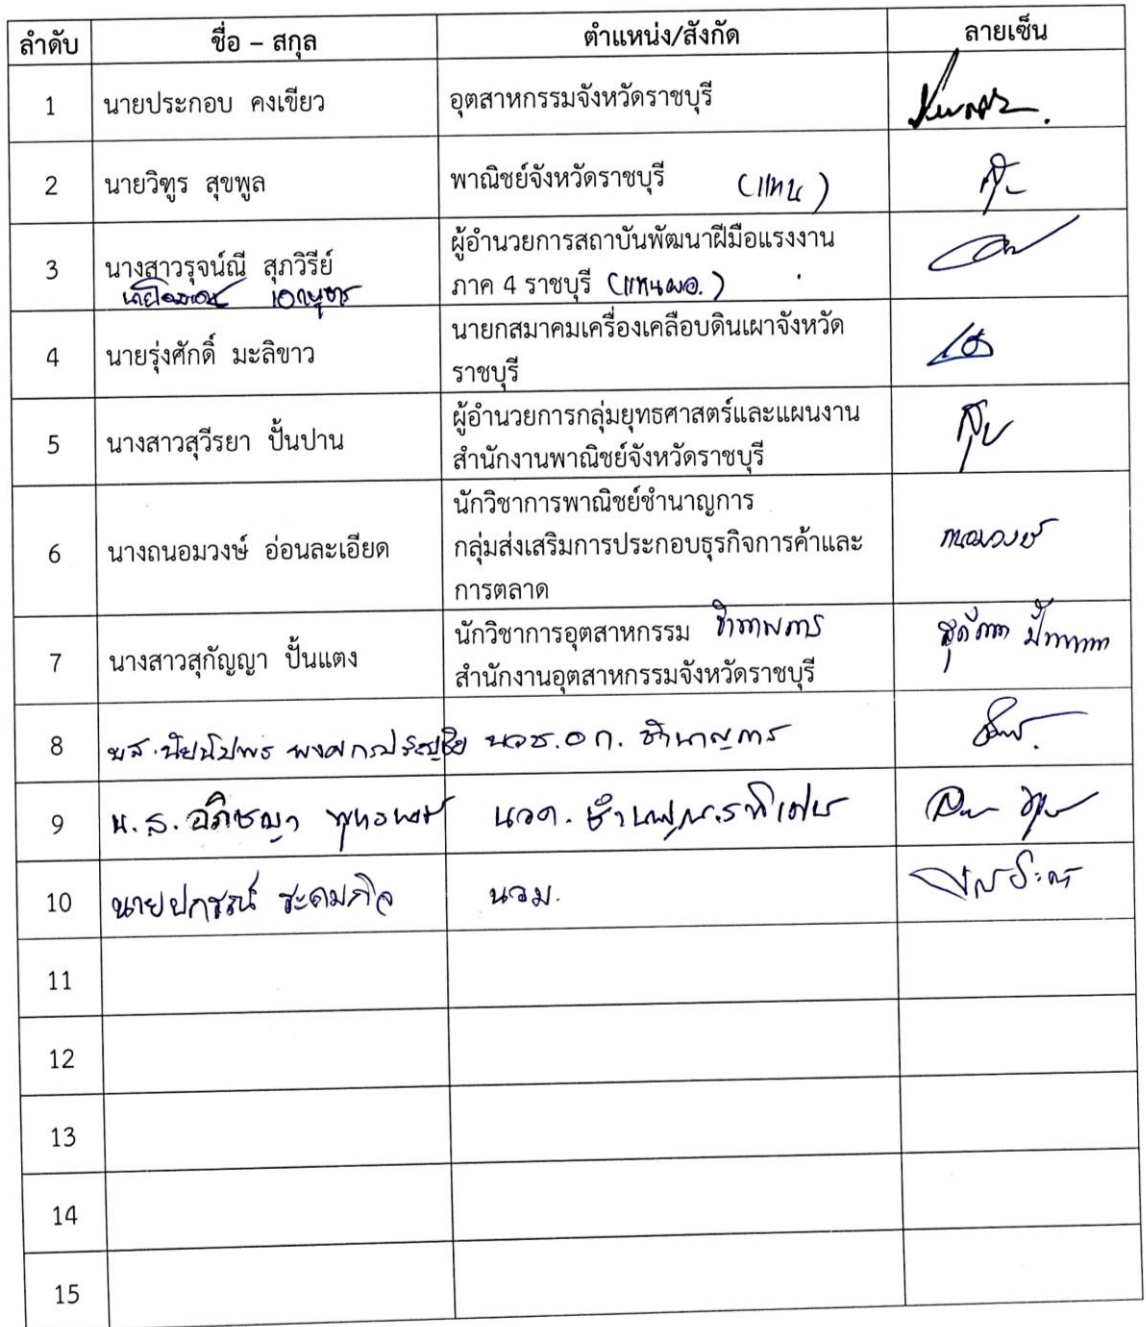 ลำดับ ชื่อ – สกุล ตำแหน่ง/สังกัด ลายเซ็น
1 นายประกอบ คงเขียว อุตสาหกรรมจังหวัดราชบุรี
2 นายวิฑูร สุขพูล พาณิชย์จังหวัดราชบุรี (แทน)
3 นางสาวรุจน์ณี สุภวิรีย์ ผู้อำนวยการสถาบันพัฒนาฝีมือแรงงาน
ภาค 4 ราชบุรี (แทนผอ.)
4 นายรุ่งศักดิ์ มะลิขาว นายกสมาคมเครื่องเคลือบดินเผาจังหวัด
ราชบุรี
5 นางสาวสุวีรยา ปั้นปาน ผู้อำนวยการกลุ่มยุทธศาสตร์และแผนงาน
สำนักงานพาณิชย์จังหวัดราชบุรี
6 นางถนอมวงษ์ อ่อนละเอียด นักวิชาการพาณิชย์ชำนาญการ
กลุ่มส่งเสริมการประกอบธุรกิจการค้าและ
การตลาด
ถนอมวงษ์
7 นางสาวสุกัญญา ปั้นแตง นักวิชาการอุตสาหกรรม ชำนาญการ
สำนักงานอุตสาหกรรมจังหวัดราชบุรี
8 นส. นวช.อก. ชำนาญการ
9 น.ส. อภิชญา นวด. ชำนาญการพิเศษ
10 นาย ระดมกิจ นวม.
11
12
13
14
15